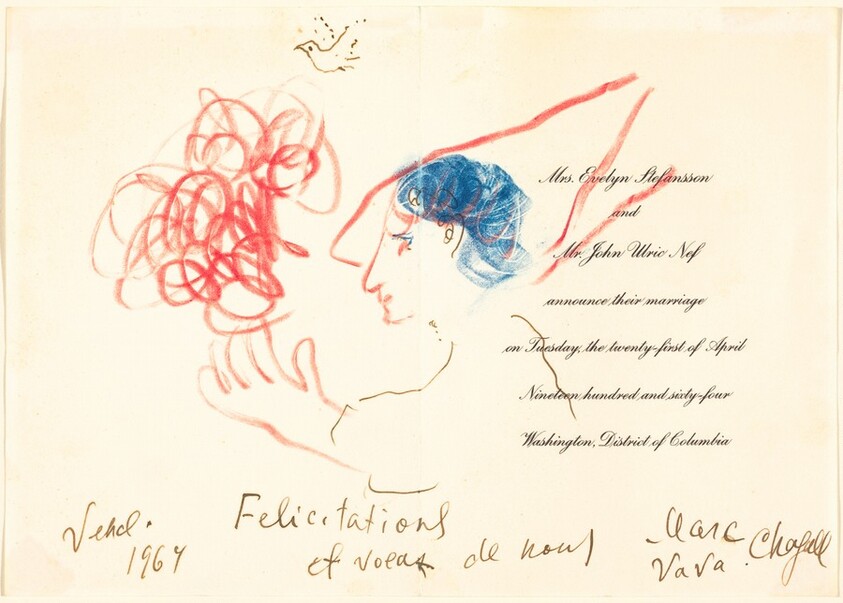 Mrs. Evelyn Stefansson
and
Mr. John Ulric Nef
announce their marriage
on Tuesday, the twenty-first of April
Nineteen hundred and sixty-four
Washington, District of Columbia
Vence.
1964
Felicitations
et voeux de nous
Marc
Vava. Chagall